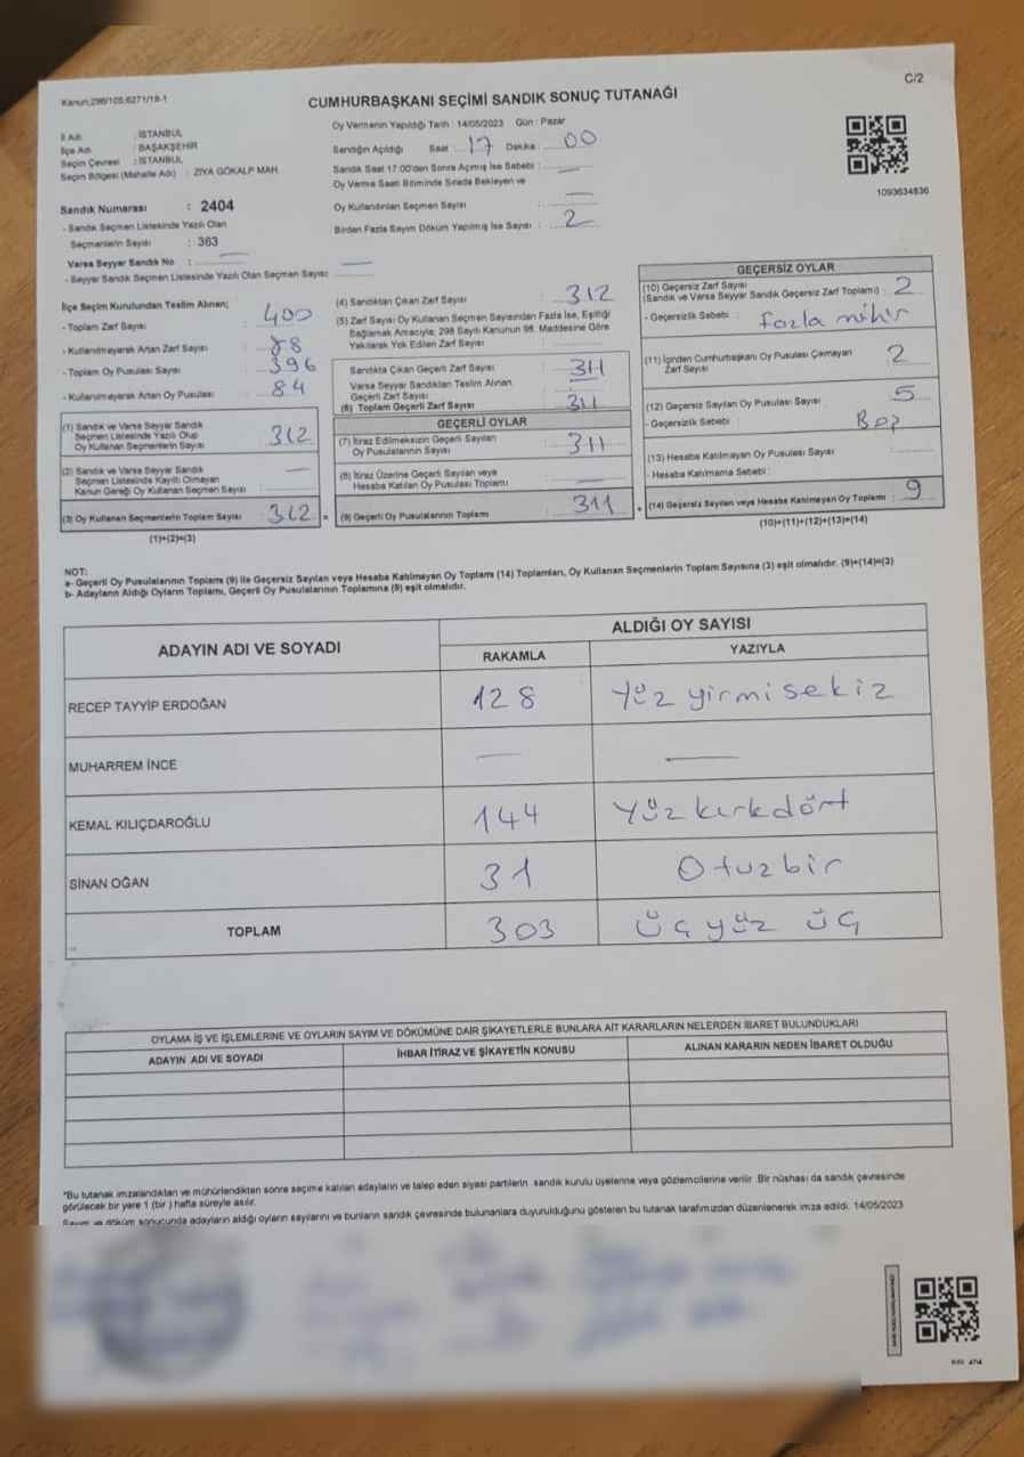 Kanun;298/105;6271/19-1
C/2
CUMHURBAŞKANI SEÇİMİ SANDIK SONUÇ TUTANAĞI
İl Adı : İSTANBUL
İlçe Adı : BAŞAKŞEHİR
Seçim Çevresi : İSTANBUL
Seçim Bölgesi (Mahalle Adı) : ZİYA GÖKALP MAH.
Sandık Numarası : 2404
- Sandık Seçmen Listesinde Yazılı Olan
Seçmenlerin Sayısı : 363
Varsa Seyyar Sandık No : —
- Seyyar Sandık Seçmen Listesinde Yazılı Olan Seçmen Sayısı : —
Oy Vermenin Yapıldığı Tarih : 14/05/2023 Gün : Pazar
Sandığın Açıldığı Saat 17 Dakika 00
Sandık Saat 17.00'den Sonra Açılmış İse Sebebi : —
Oy Verme Saati Bitiminde Sırada Bekleyen ve
Oy Kullandırılan Seçmen Sayısı : —
Birden Fazla Sayım Döküm Yapılmış İse Sayısı : 2
1093634836
İlçe Seçim Kurulundan Teslim Alınan;
- Toplam Zarf Sayısı : 400
- Kullanılmayarak Artan Zarf Sayısı : 88
- Toplam Oy Pusulası Sayısı : 396
- Kullanılmayarak Artan Oy Pusulası : 84
(1) Sandık ve Varsa Seyyar Sandık
Seçmen Listesinde Yazılı Olup
Oy Kullanan Seçmenlerin Sayısı : 312
(2) Sandık ve Varsa Seyyar Sandık
Seçmen Listesinde Kayıtlı Olmayan
Kanun Gereği Oy Kullanan Seçmen Sayısı : —
(3) Oy Kullanan Seçmenlerin Toplam Sayısı : 312 =
(1)+(2)=(3)
(4) Sandıktan Çıkan Zarf Sayısı : 312
(5) Zarf Sayısı Oy Kullanan Seçmen Sayısından Fazla İse, Eşitliği
Sağlamak Amacıyla; 298 Sayılı Kanunun 98. Maddesine Göre
Yakılarak Yok Edilen Zarf Sayısı :
Sandıkta Çıkan Geçerli Zarf Sayısı : 311
Varsa Seyyar Sandıktan Teslim Alınan
Geçerli Zarf Sayısı : —
(6) Toplam Geçerli Zarf Sayısı : 311
GEÇERLİ OYLAR
(7) İtiraz Edilmeksizin Geçerli Sayılan
Oy Pusulalarının Sayısı : 311
(8) İtiraz Üzerine Geçerli Sayılan veya
Hesaba Katılan Oy Pusulası Toplamı : —
(9) Geçerli Oy Pusulalarının Toplamı : 311 +
GEÇERSİZ OYLAR
(10) Geçersiz Zarf Sayısı
(Sandık ve Varsa Seyyar Sandık Geçersiz Zarf Toplamı) : 2
- Geçersizlik Sebebi : fazla mühür
(11) İçinden Cumhurbaşkanı Oy Pusulası Çıkmayan
Zarf Sayısı : 2
(12) Geçersiz Sayılan Oy Pusulası Sayısı : 5
- Geçersizlik Sebebi : Boş
(13) Hesaba Katılmayan Oy Pusulası Sayısı :
- Hesaba Katılmama Sebebi :
(14) Geçersiz Sayılan veya Hesaba Katılmayan Oy Toplamı : 9
(10)+(11)+(12)+(13)=(14)
NOT:
a- Geçerli Oy Pusulalarının Toplamı (9) ile Geçersiz Sayılan veya Hesaba Katılmayan Oy Toplamı (14) Toplamları, Oy Kullanan Seçmenlerin Toplam Sayısına (3) eşit olmalıdır. (9)+(14)=(3)
b- Adayların Aldığı Oyların Toplamı, Geçerli Oy Pusulalarının Toplamına (9) eşit olmalıdır.
ADAYIN ADI VE SOYADI
ALDIĞI OY SAYISI
RAKAMLA YAZIYLA
RECEP TAYYİP ERDOĞAN 128 Yüz yirmi sekiz
MUHARREM İNCE — —
KEMAL KILIÇDAROĞLU 144 Yüz kırk dört
SİNAN OĞAN 31 Otuz bir
TOPLAM 303 üç yüz üç
OYLAMA İŞ VE İŞLEMLERİNE VE OYLARIN SAYIM VE DÖKÜMÜNE DAİR ŞİKAYETLERLE BUNLARA AİT KARARLARIN NELERDEN İBARET BULUNDUKLARI
ADAYIN ADI VE SOYADI İHBAR İTİRAZ VE ŞİKAYETİN KONUSU ALINAN KARARIN NEDEN İBARET OLDUĞU
*Bu tutanak imzalandıktan ve mühürlendikten sonra seçime katılan adayların ve talep eden siyasi partilerin sandık kurulu üyelerine veya gözlemcilerine verilir. Bir nüshası da sandık çevresinde
görülecek bir yere 1 (bir) hafta süreyle asılır.
Sayım ve döküm sonucunda adayların aldığı oyların sayılarını ve bunların sandık çevresinde bulunanlara duyurulduğunu gösteren bu tutanak tarafımızdan düzenlenerek imza edildi. 14/05/2023